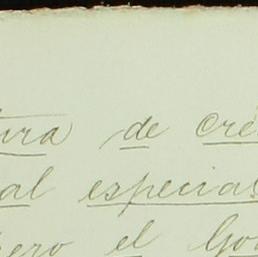 tura de cré
al especia
pero el Go